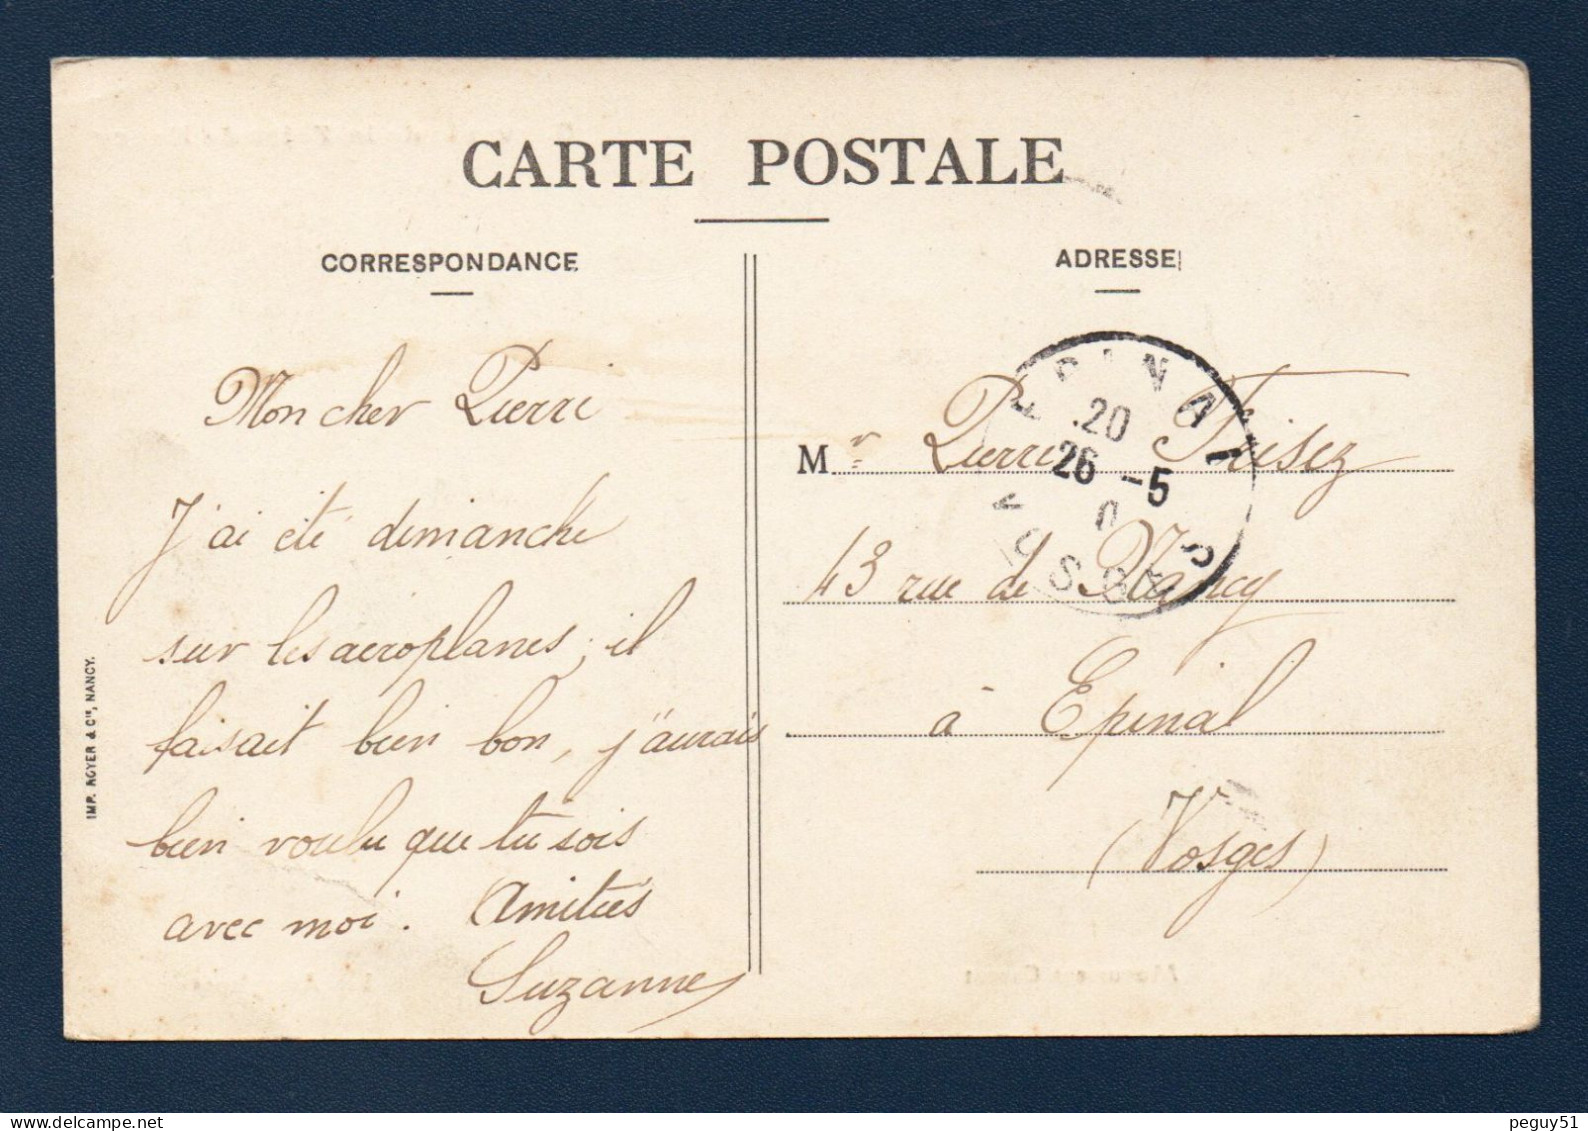 CARTE POSTALE
CORRESPONDANCE
ADRESSE
Mon cher Pierre
J'ai été dimanche
sur les aeroplanes, il
faisait bien bon, j'aurais
bien voulu que tu sois
avec moi. Amitiés
Suzanne
Mr Pierre Frisez
43 rue de Nancy
à Epinal
(Vosges)
EPINAL
20
26 -5
VOSGES
IMP. ROYER & Cie, NANCY.
peguy51